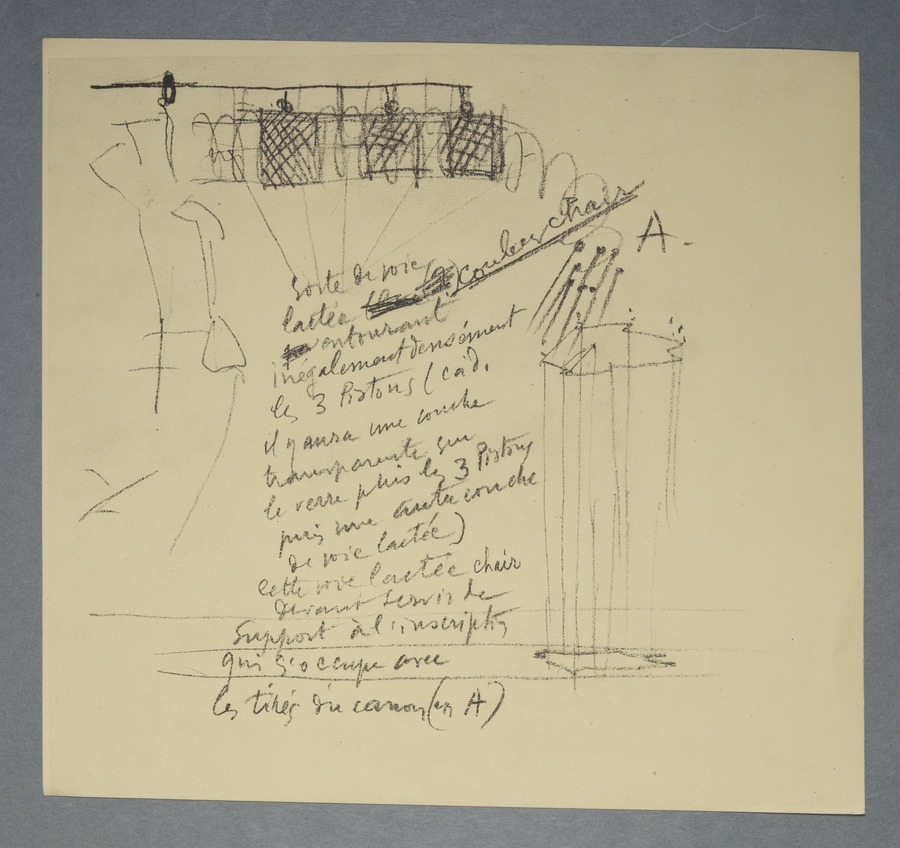 Sorte de voie
lactée couleur chair A.
entourant
inégalement densément
les 3 Pistons (càd.
il y aura une couche
transparente sur
le verre puis les 3 Pistons
puis une autre couche
de voie lactée)
Cette voie lactée chair
devant servir de
Support à l'inscription
qui s'occupe avec
les tirés du canon (en A)